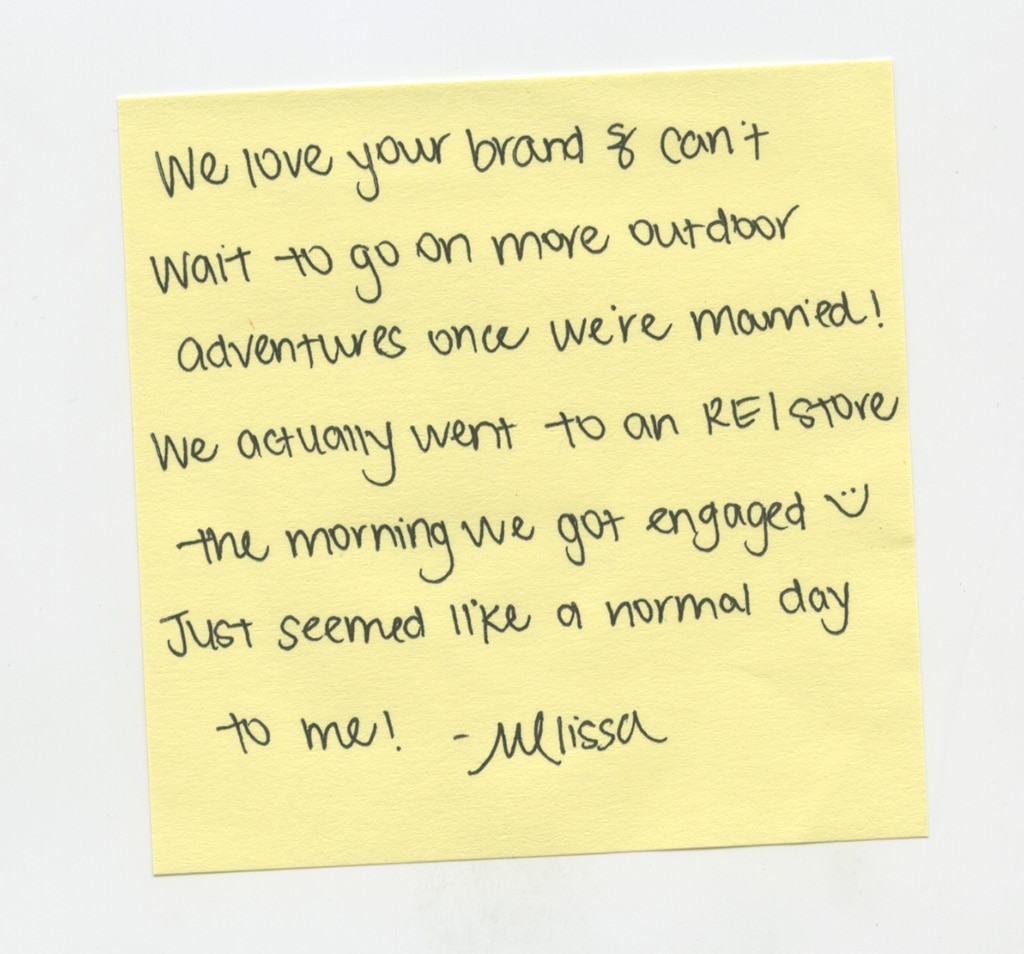 We love your brand & can't
wait to go on more outdoor
adventures once we're married!
We actually went to an REI store
the morning we got engaged :)
Just seemed like a normal day
to me! -Melissa